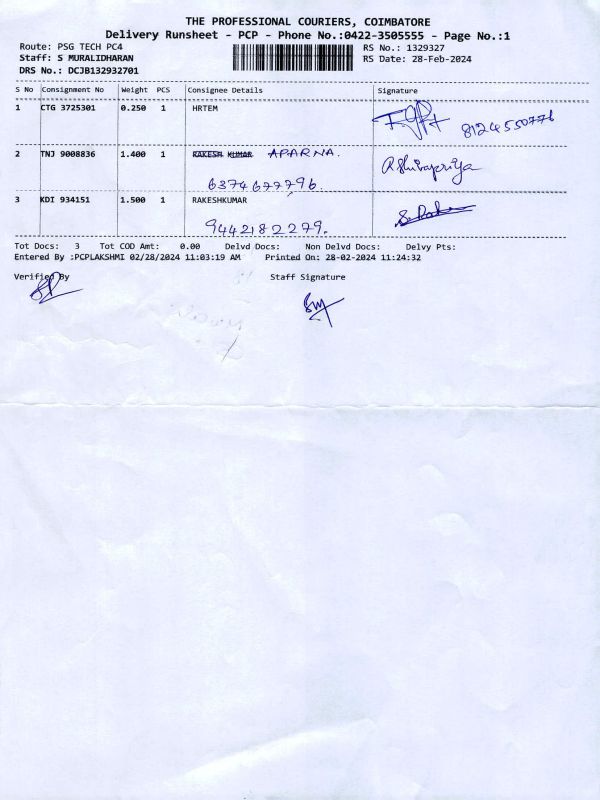 THE PROFESSIONAL COURIERS, COIMBATORE
Delivery Runsheet - PCP - Phone No.:0422-3505555 - Page No.:1
Route: PSG TECH PC4 RS No.: 1329327
Staff: S MURALIDHARAN RS Date: 28-Feb-2024
DRS No.: DCJB132932701
S No Consignment No Weight PCS Consignee Details Signature
1 CTG 3725301 0.250 1 HRTEM
8124550776
2 TNJ 9008836 1.400 1 RAKESH KUMAR APARNA.
6374677796.
3 KDI 934151 1.500 1 RAKESHKUMAR
9442182279.
Tot Docs: 3 Tot COD Amt: 0.00 Delvd Docs: Non Delvd Docs: Delvy Pts:
Entered By :PCPLAKSHMI 02/28/2024 11:03:19 AM Printed On: 28-02-2024 11:24:32
Verified By Staff Signature